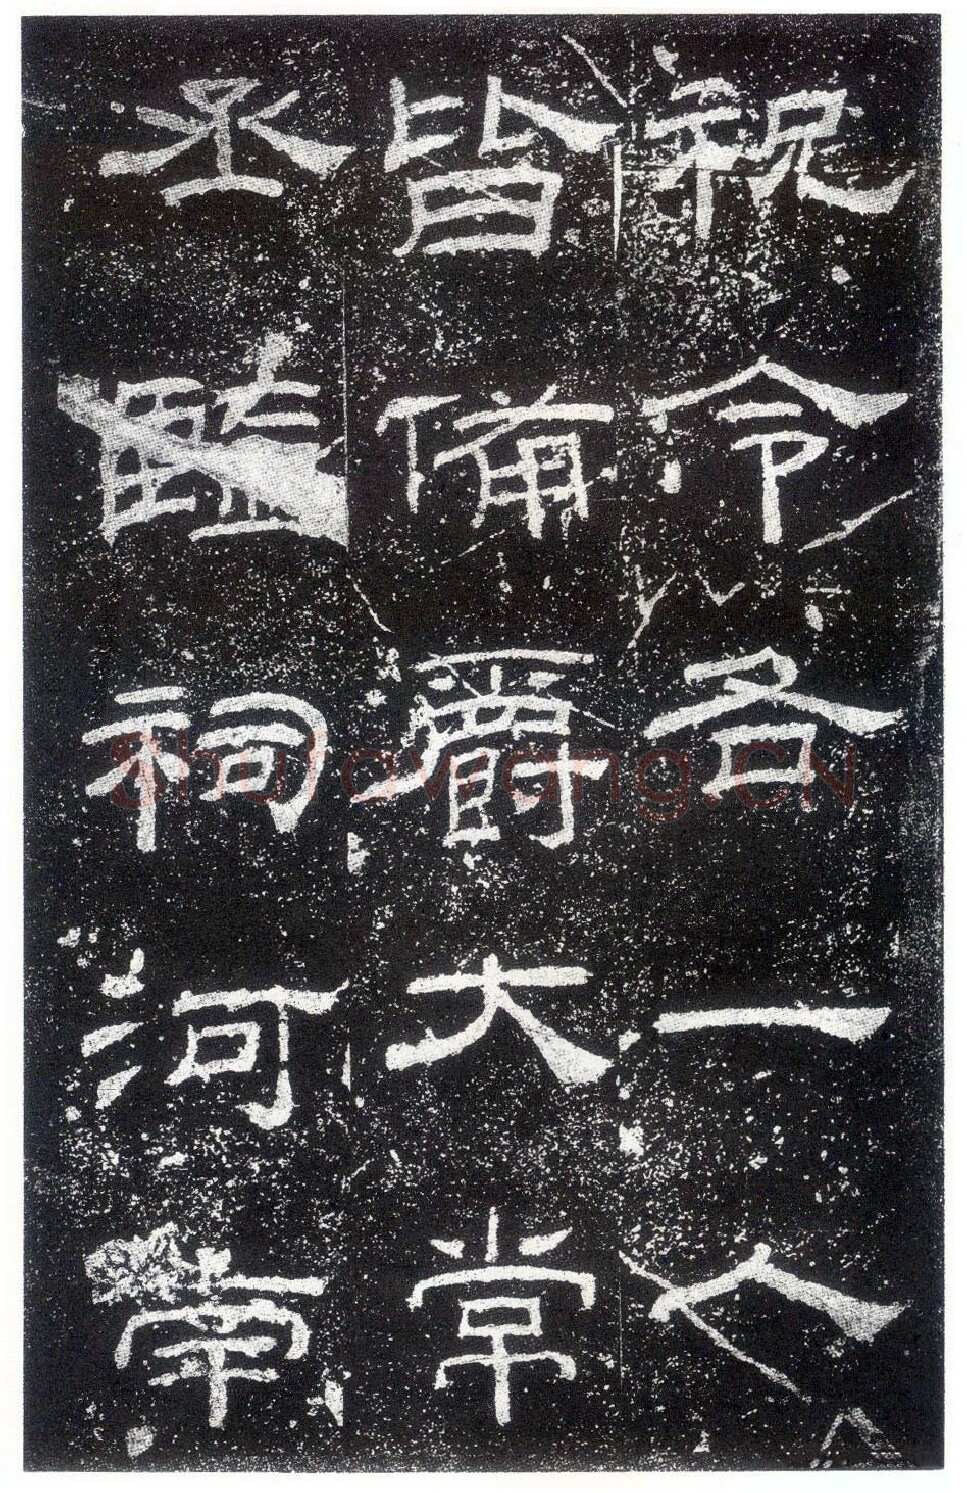 祝令各一人
皆備爵大常
丞監祠河南
shufawang.CN